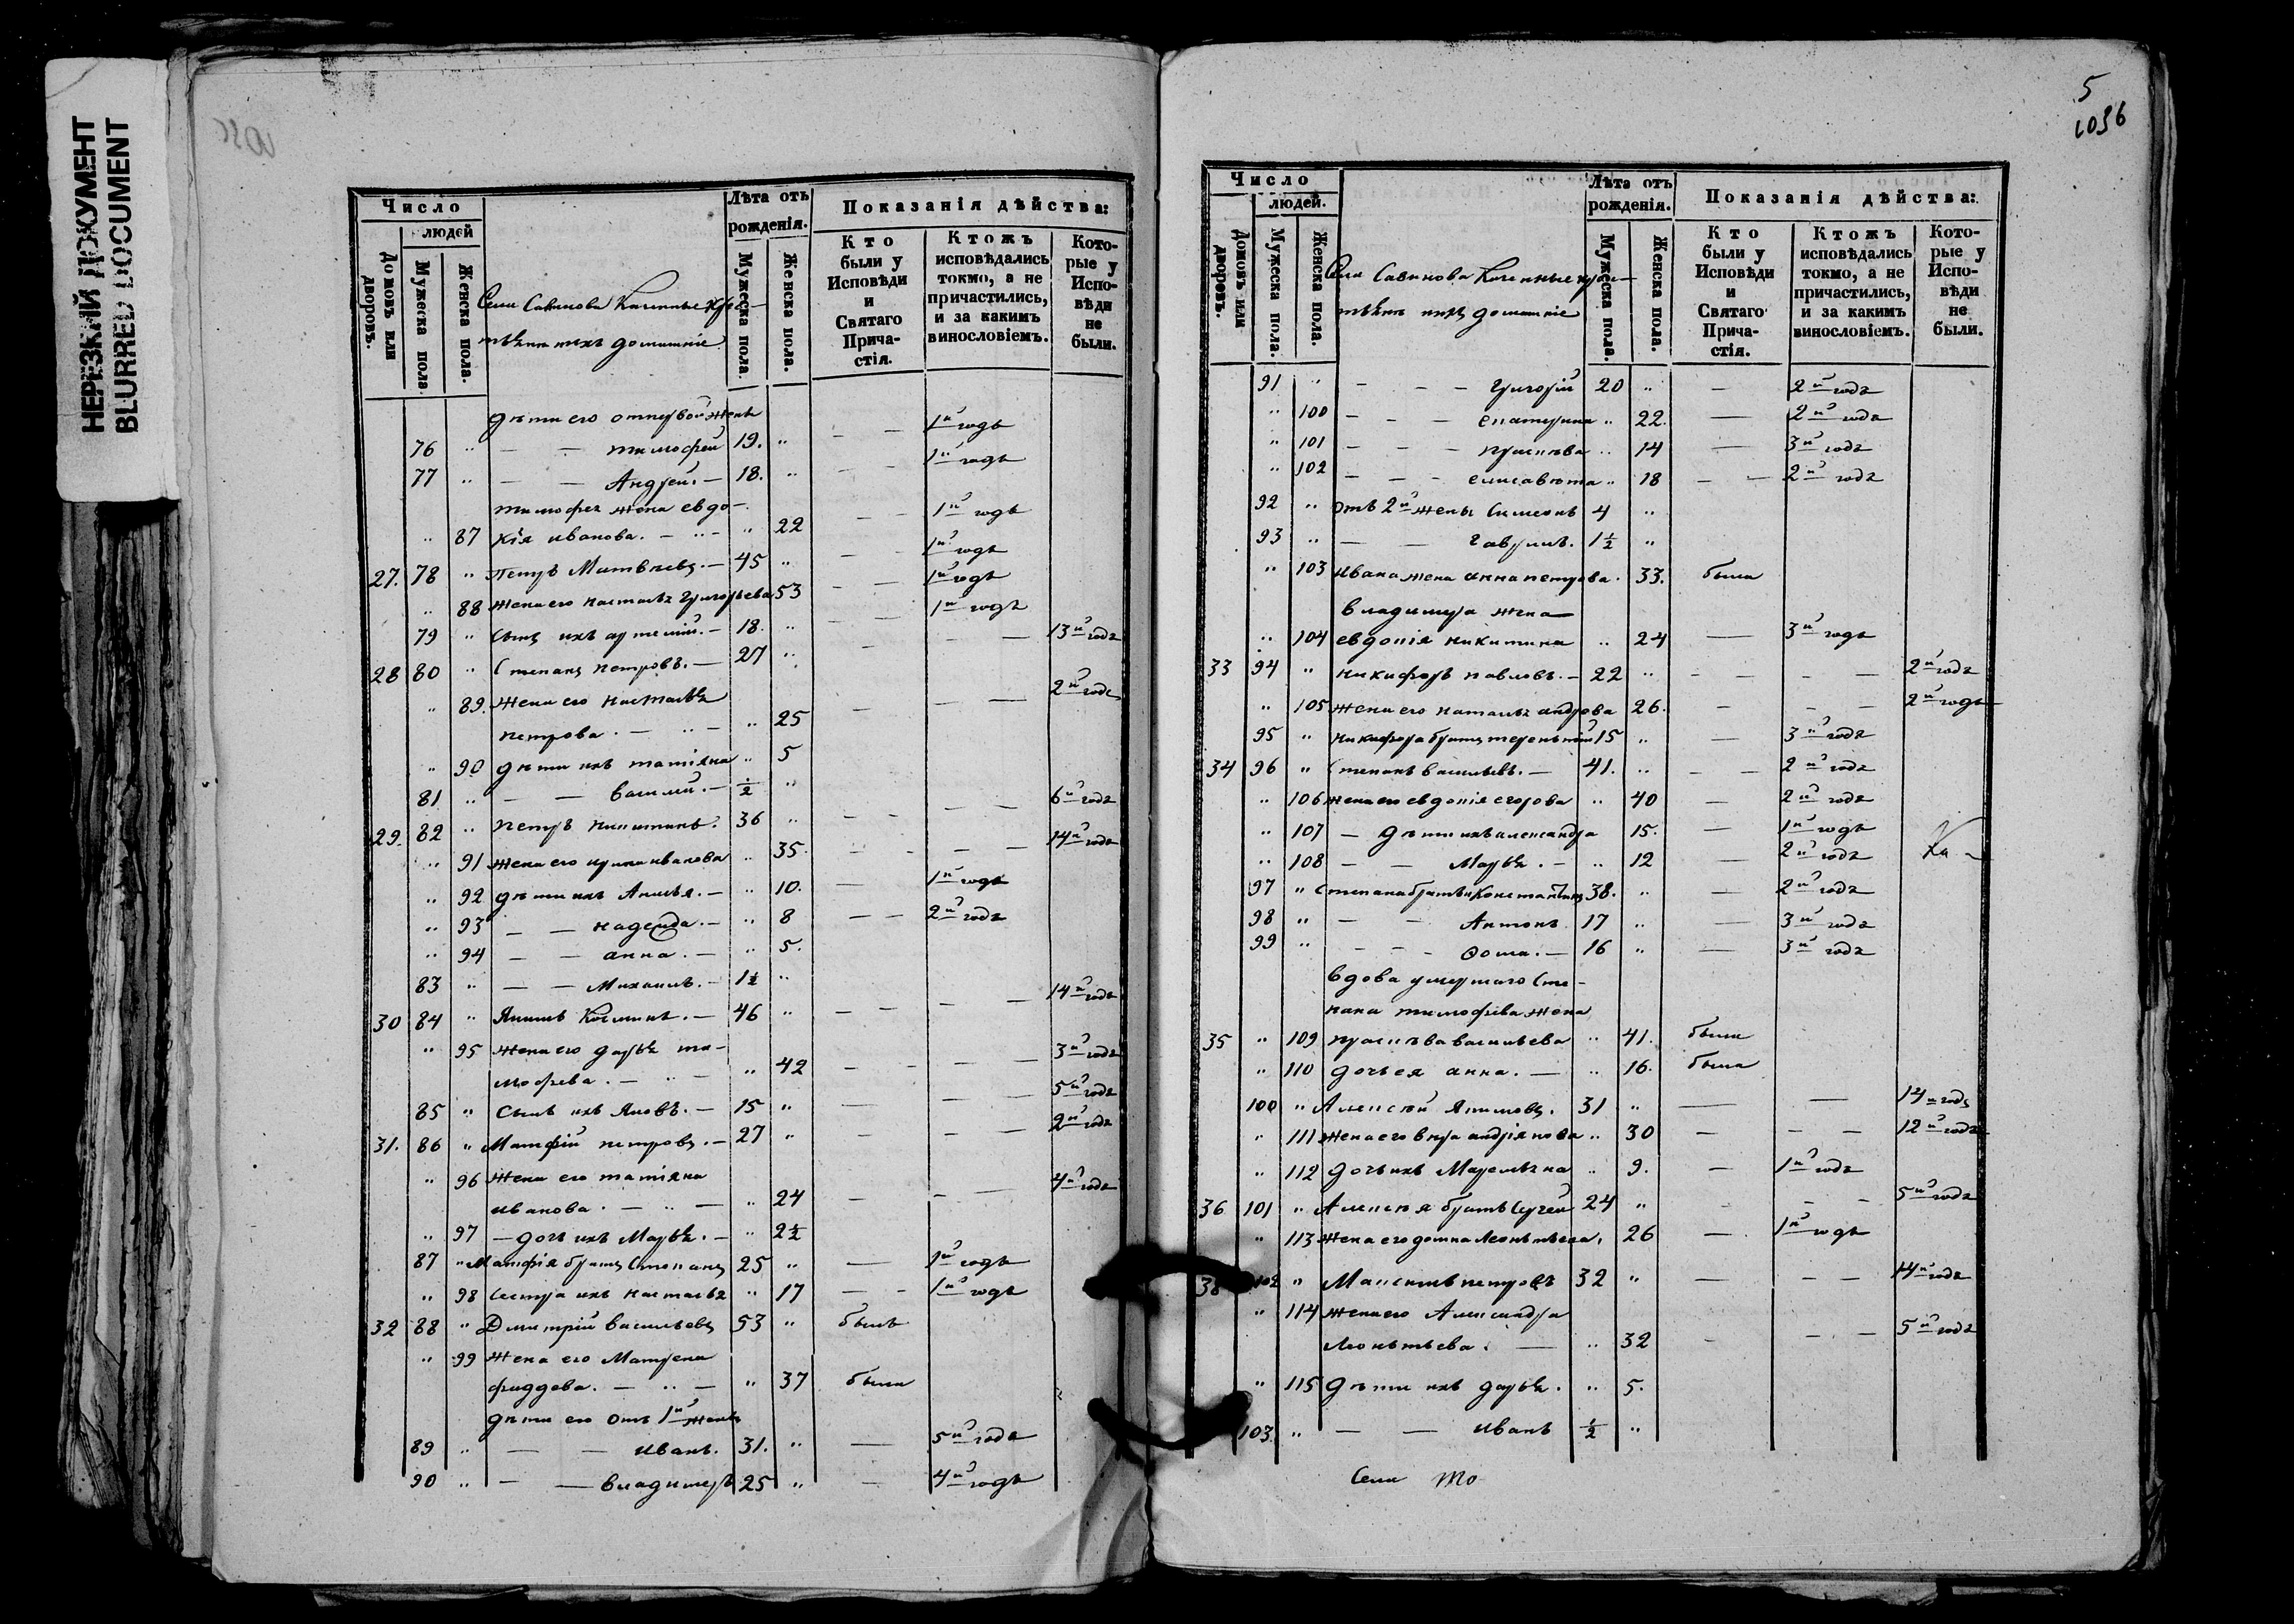 НЕРЕЗКИЙ ДОКУМЕНТ
BLURRED DOCUMENT
Число
людей
Домовъ или дворовъ.
Мужеска пола
Женска пола.
Села Савинова Казенные крес-
тьяни ихъ домашніе
Лѣта отъ рожденія.
Мужеска пола.
Женска пола.
Показанія дѣйства:
Кто были у Исповѣди и Святаго Прича-стія.
Ктожъ исповѣдались токмо, а не причастились, и за какимъ винословіемъ.
Кото-рые у Испо-вѣди не были.
дѣти его отпервой жены
76 " — — тимофей 19. " — — 1й годъ
77 " — — Андрей. — 18. " — — 1й годъ
тимофея жена евдо-
" 87 кія иванова. — " — " 22 — — 1й годъ
27. 78 " Петръ Матвѣевъ. — 45 " — 1й годъ
" 88 жена его насталья григорьева 53 — — 1й годъ
79 " Сынъ ихъ артемий. — 18. " — — 1й годъ
28 80 " Степанъ петровъ. — 27 " — — — 13й года
" 89. жена его насталья
петрова. — " — " 25 — — — 2й года
" 90 дѣти ихъ татіяна " 5
81 " — — василий. — 1/2 "
29. 82 " петръ никитинъ. 36 " — — — — 6й года
" 91 жена его ирина иванова " 35. — — — — 14й года
" 92 дѣти ихъ Акилья. — " 10. — 1й годъ
" 93 — — надежда. — " 8 — — 2й года
" 94 — — анна. — " 5.
83 " — — Михаилъ. — 1 1/2 "
30 84 " Якимъ Козминъ. — 46 " — — — — 14й года
" 95 жена его дарья ти-
мофеева. — " — " 42 — — — — 3й года
85 " сынъ ихъ Яковъ. — 15 " — — — 5й года
31. 86 " Матфій петровъ. — 27 " — — — 2й года
" 96 жена его татіяна
иванова. — " — " 24 — — — 4й года
" 97 — дочь ихъ Марья. — " 2 1/2
87 " Матфія братъ Степанъ 25 " — 1й годъ
" 98 сестра ихъ насталья " 17 — — 1й годъ
32 88 " Дмитрій васильевъ 53 " былъ
" 99 жена его Матрена
фаддева. — " — " 37 была
дѣти его отъ 1й жены
89 " — — иванъ. 31. " — 5й года
90 " — — владимеръ 25 " — 4й годъ
5
1036
Число
людей.
Домовъ или дворовъ.
Мужеска пола.
Женска пола.
Села Савинова Казенные крес-
тьяни ихъ домашніе
Лѣта отъ рожденія.
Мужеска пола.
Женска пола.
Показанія дѣйства:
Кто были у Исповѣди и Святаго Прича-стія.
Ктожъ исповѣдались токмо, а не причастились, и за какимъ винословіемъ.
Кото-рые у Испо-вѣди не были.
91 " — — — григорій 20 " — 2й года
" 100 — — — екатерина " 22. — 2й года
" 101 — — — прасковья " 14 — 3й года
" 102 — — — елисавета " 18 — — 2й года
92 " отъ 2й жены Симеонъ 4 "
93 " — — гаврилъ. 1 1/2 "
" 103 ивана жена анна петрова. 33. была
владимера жена
" 104 евдокія никитина " 24 — 3й годъ
33 94 " никифоръ павловъ. — 22 " — — — — 2й года
" 105 жена его наталья андрова 26. — — — 2й годъ
95 " никифора братъ терентий 15 " — 3й года
34 96 " Степанъ васильевъ. — 41. " — — 2й года
" 106 жена его евдокія егорова " 40 — 2й года
" 107 — дѣти ихъ александра 15. — 1й годъ
" 108 — — Марья. — " 12 — 2й года
97 " Степана братья Константинъ 38. " — 2й года
98 " — — Антонъ 17 " — 3й года
99 " — — — Фома. — 16 " — 3й года
вдова умершаго Сте-
пана тимофеева жена
35 " 109 прасковья васильева " 41. была
" 110 дочь ея анна. — " 16. была
100 " Алексѣй Якимовъ. 31 " — — 14й годъ
" 111 жена его вера андріянова " 30 — — — 12й года
" 112 дочь ихъ " 9. — 1й года
36 101 " Алексѣя братъ Сергей 24 " — — — 5й года
" 113 жена его домна леонтьева. 26 — 1й годъ
102 " Максимъ петровъ 32 " — — — 14й года
" 114 жена его Александра
леонтьева. — " 32 — — — 5й года
" 115 дѣти ихъ дарья. " 5.
103. " — — иванъ 1/2 "
Села то